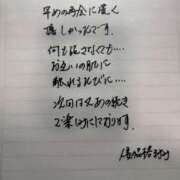 早めの再会に凄く
嬉しかったです
何も話さなくても....
お互いの肌に
触れるたびに....
次回は又あの続き
で楽しみにしております。